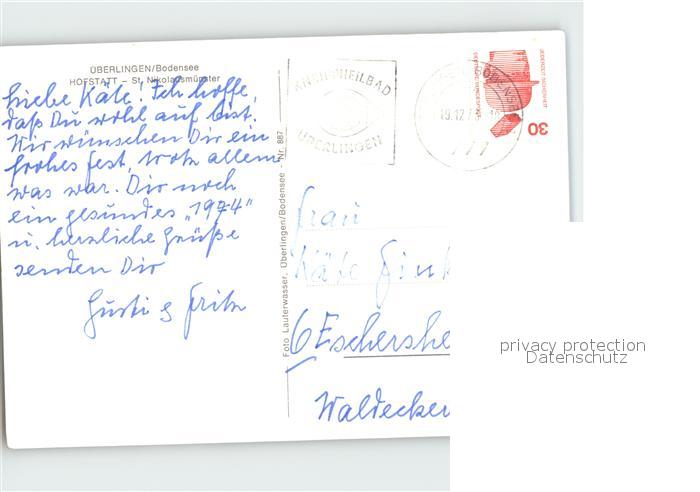 ÜBERLINGEN/Bodensee
HOFSTATT – St. Nikolausmünster
Liebe Käte! Ich hoffe,
daß Du wohl auf bist.
Wir wünschen Dir ein
frohes Fest, trotz allem
was war. Dir noch
ein gesundes „1974"
u. herzliche Grüße
senden Dir
Gusti & Fritz
Foto Lauterwasser, Überlingen/Bodensee - Nr. 887
KNEIPPHEILBAD
ÜBERLINGEN
19.12.7
30
DEUTSCHE BUNDESPOST
JEDERZEIT SICHERHEIT
Frau
Käte Fink
6 Eschershe
Waldecker
privacy protection
Datenschutz